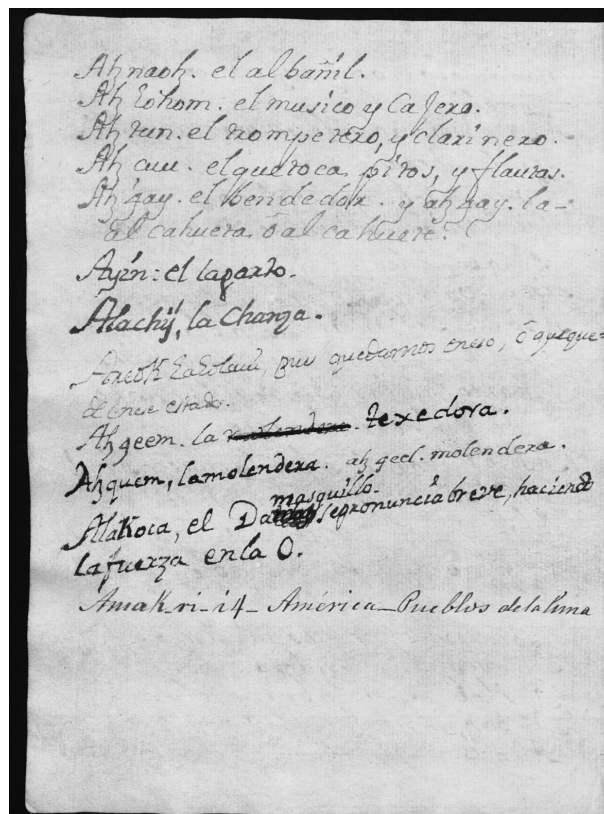 Ah naoh. el albañil.
Ah Eohom. el musico y Cajero.
Ah tun. el trompetero, y clarinero.
Ah cuu. el que toca pitos, y flautas.
Ah zay. el bendedor. y ah zay. la
alcahueta. ô alcahuete.
Ayin: el lagarto.
Alachij, la Chanza.
que quedamos en eso, ô que que=
de en ese estado.
Ah geem. la molendera. texedora.
Ah quem, la molendera. ah geel. molendera.
masquillo.
Alakoca, el Da se pronuncia breve, haciendo
la fuerza en la O.
Amak_ri_i4_ América_Pueblos de la luna